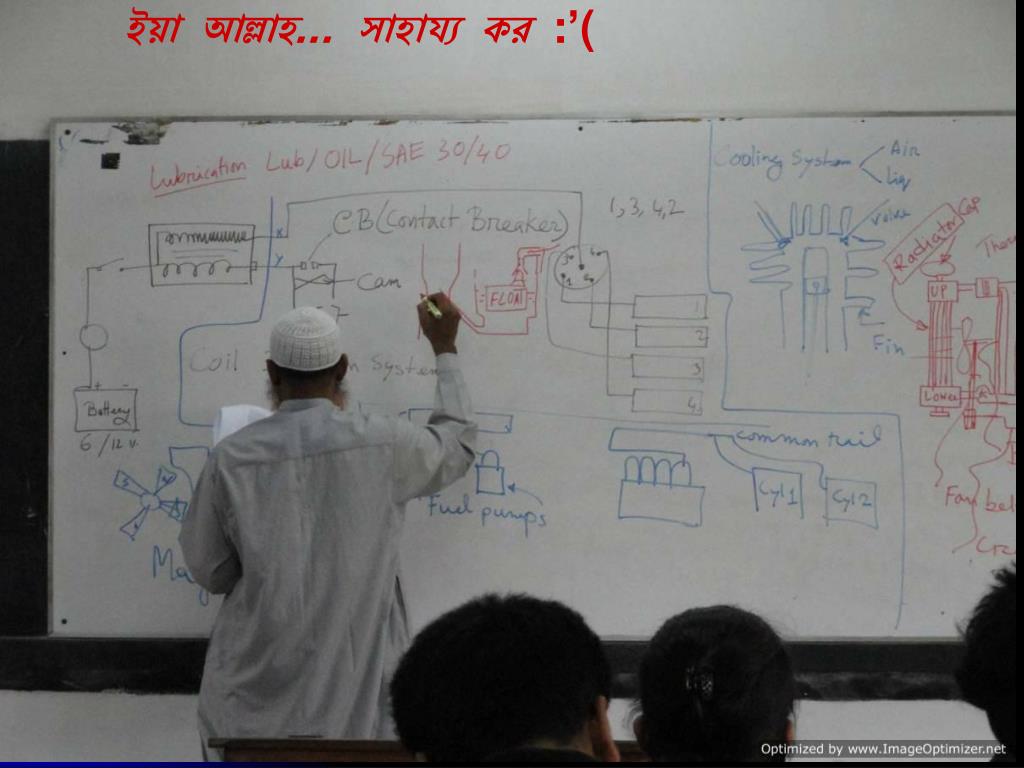 ইয়া আল্লাহ... সাহায্য কর :’(
Lubrication Lub/OIL/SAE 30/40
Cooling System
Air
Liq
CB (Contact Breaker)
1, 3, 4, 2
valve
Radiator
Cap
x
y
Cam
FLOAT
UP
1
2
3
4
Fin
Coil
System
Battery
+ -
6/12 v.
LOWER
common rail
Fuel pumps
Cyl 1
Cyl 2
Fan bel
Optimized by www.ImageOptimizer.net